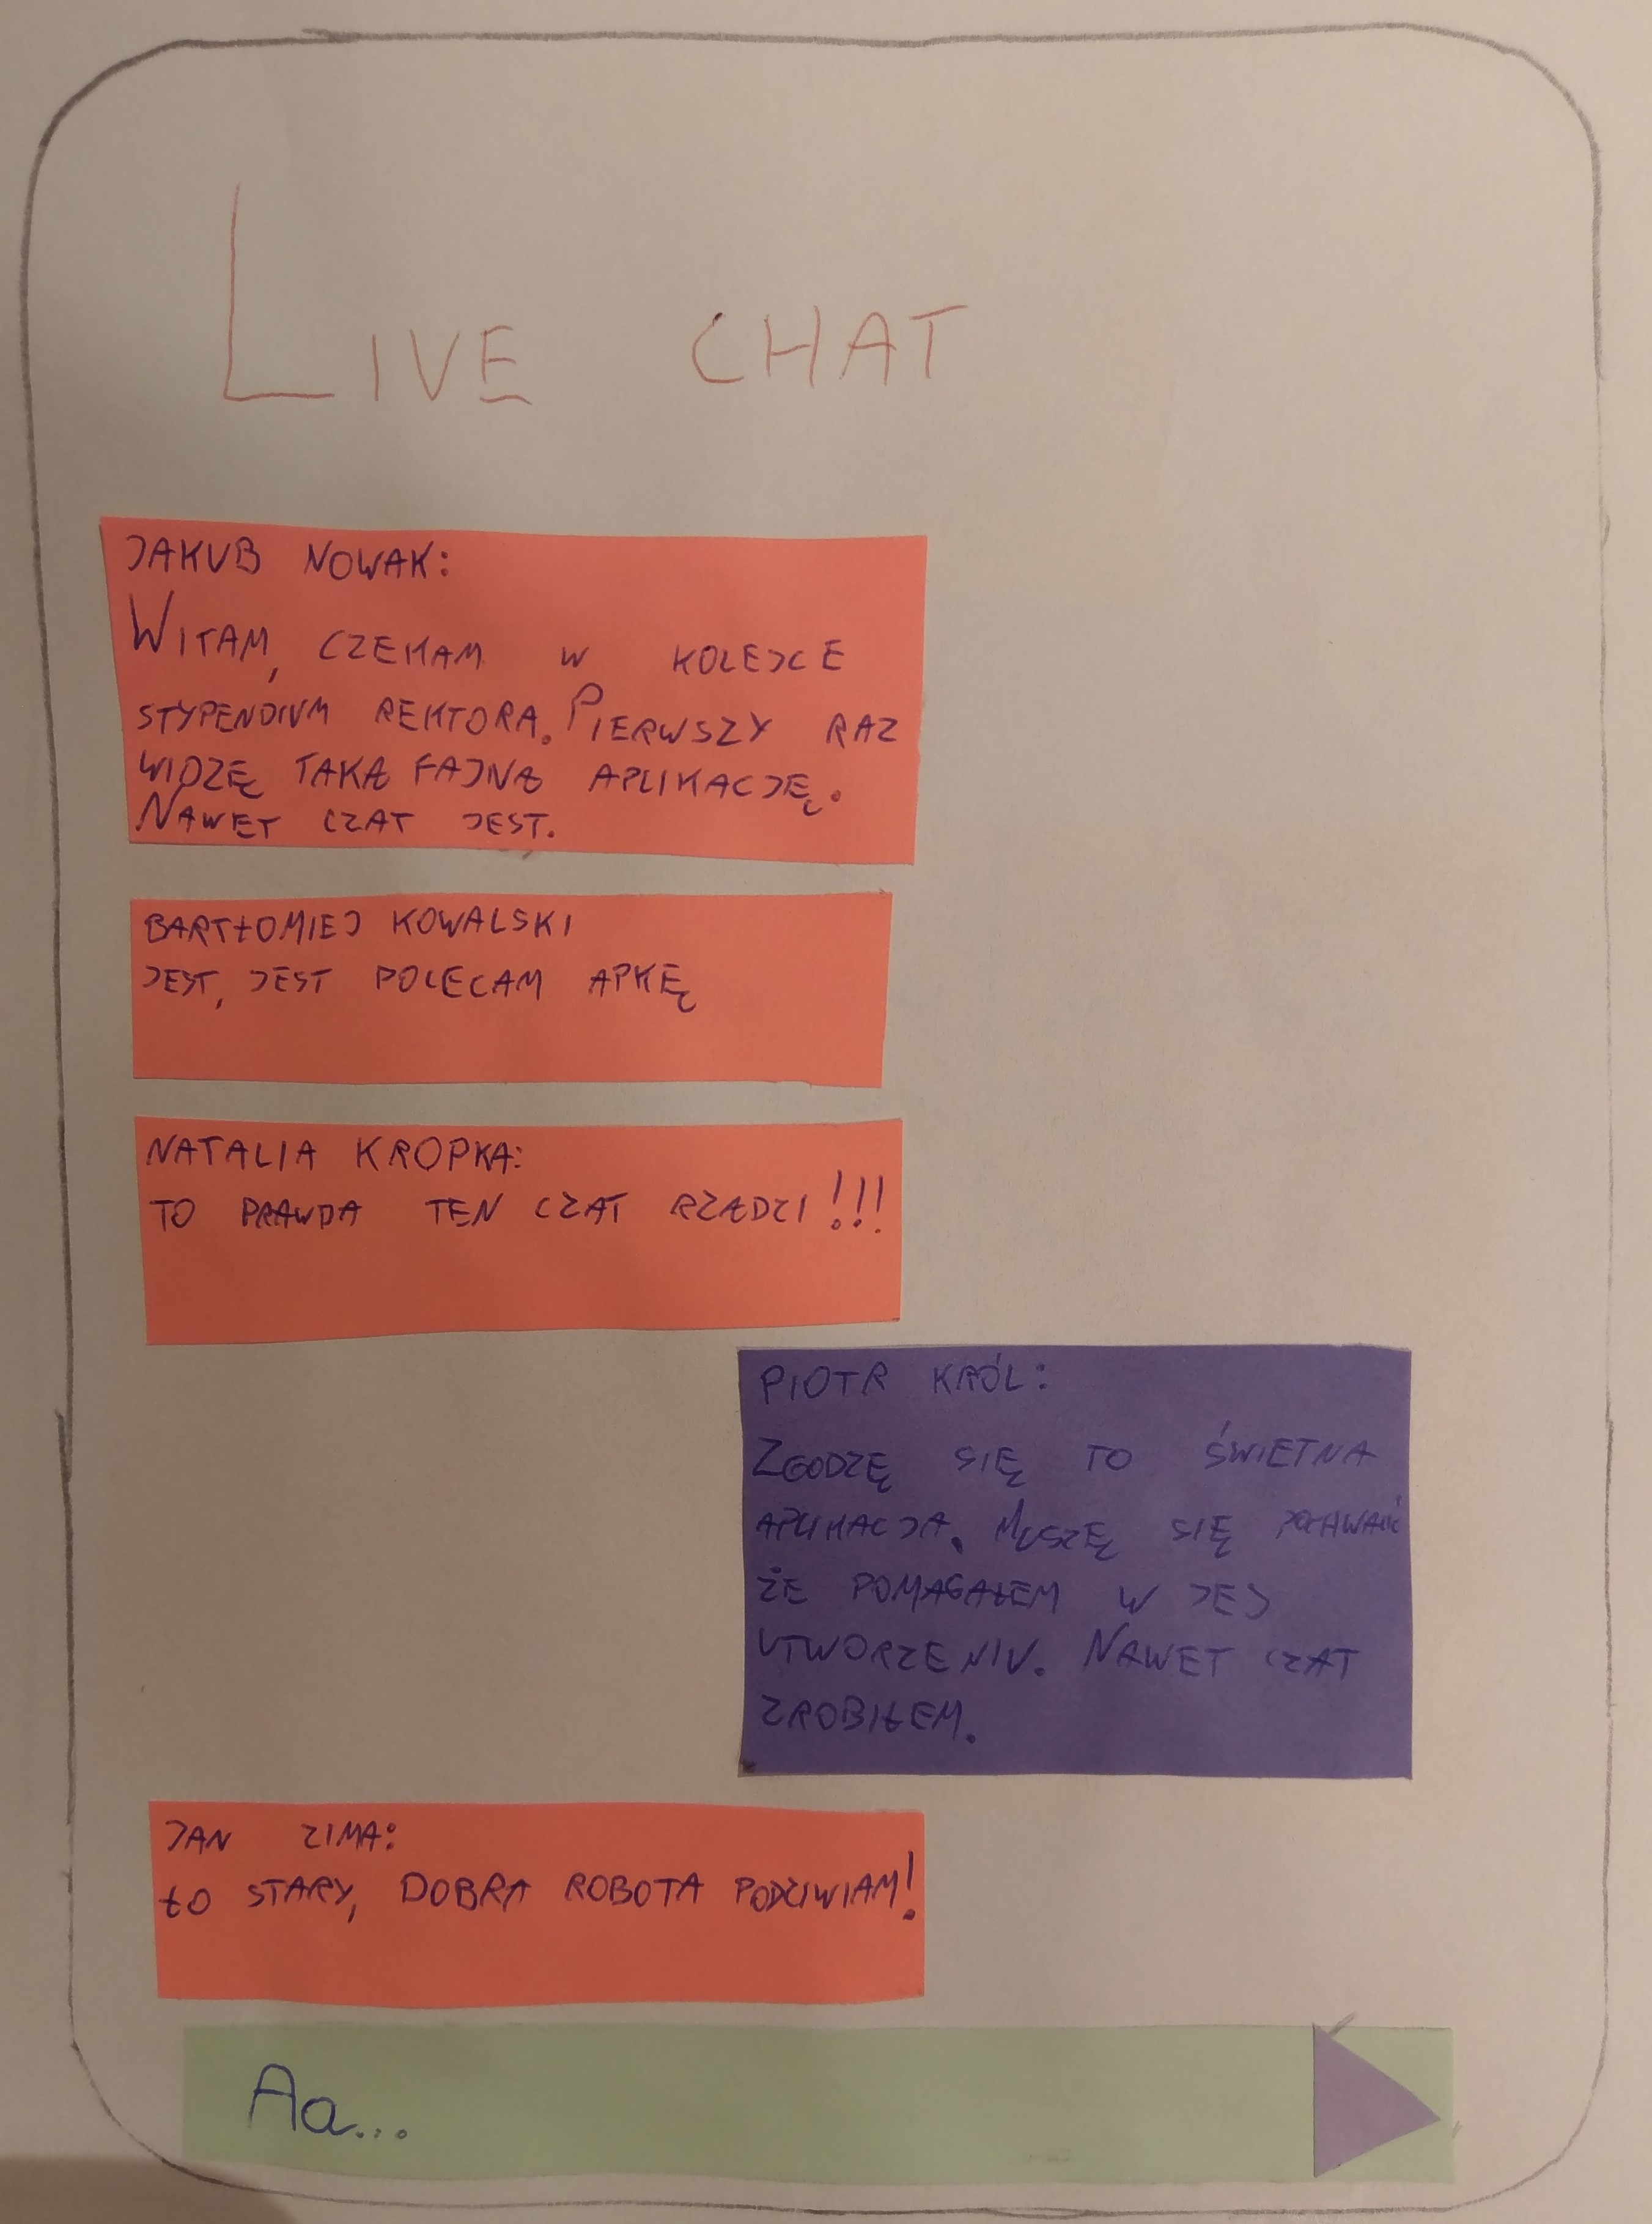 LIVE CHAT
JAKUB NOWAK:
WITAM, CZEKAM W KOLEJCE
STYPENDIUM REKTORA. PIERWSZY RAZ
WIDZĘ TAKĄ FAJNĄ APLIKACJĘ.
NAWET CZAT JEST.
BARTŁOMIEJ KOWALSKI
JEST, JEST POLECAM APKĘ
NATALIA KROPKA:
TO PRAWDA TEN CZAT RZĄDZI!!!
PIOTR KRÓL:
ZGODZĘ SIĘ TO ŚWIETNA
APLIKACJA. MUSZĘ SIĘ
ŻE POMAGAŁEM W JEJ
UTWORZENIU. NAWET CZAT
ZROBIŁEM.
JAN ZIMA:
ŁO STARY, DOBRA ROBOTA PODZIWIAM!
Aa...